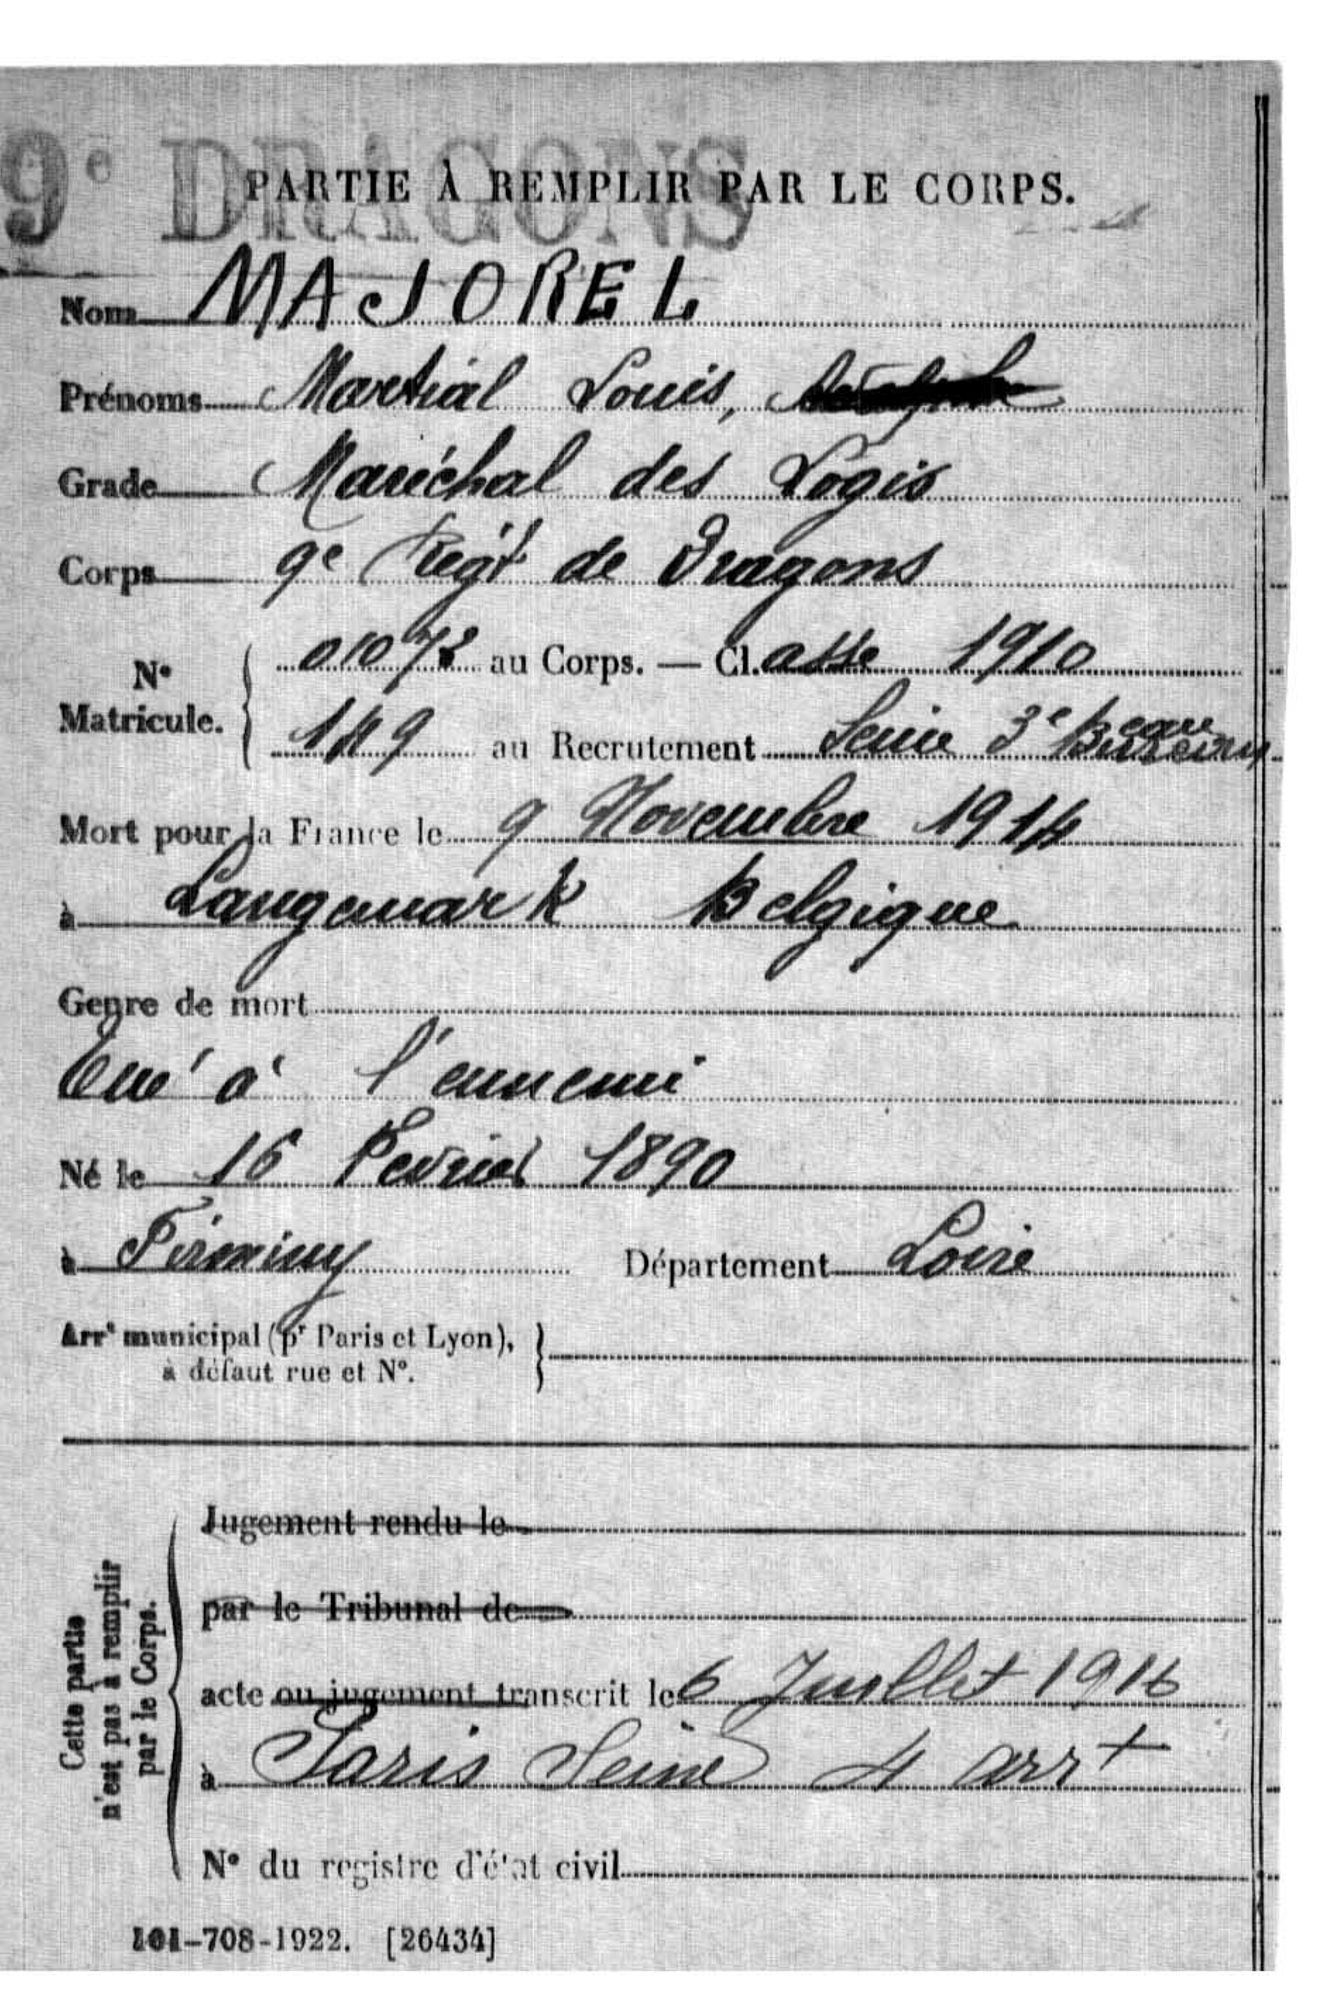 9e DRAGONS
PARTIE À REMPLIR PAR LE CORPS.
Nom MAJOREL
Prénoms Martial Louis,
Grade Maréchal des Logis
Corps 9e Régt de Dragons
No Matricule.
au Corps. — Classe 1910
149 au Recrutement Seine 3e Bureau
Mort pour la France le 9 Novembre 1914
à Langemark Belgique
Genre de mort
Tué à l'ennemi
Né le 16 Fevrier 1890
à Firminy Département Loire
Arrt municipal (pr Paris et Lyon),
à défaut rue et No.
Cette partie n'est pas à remplir par le Corps.
Jugement rendu le
par le Tribunal de
acte ou jugement transcrit le 6 Juillet 1916
à Paris Seine 4 arrt
No du registre d'état civil
101-708-1922. [26434]